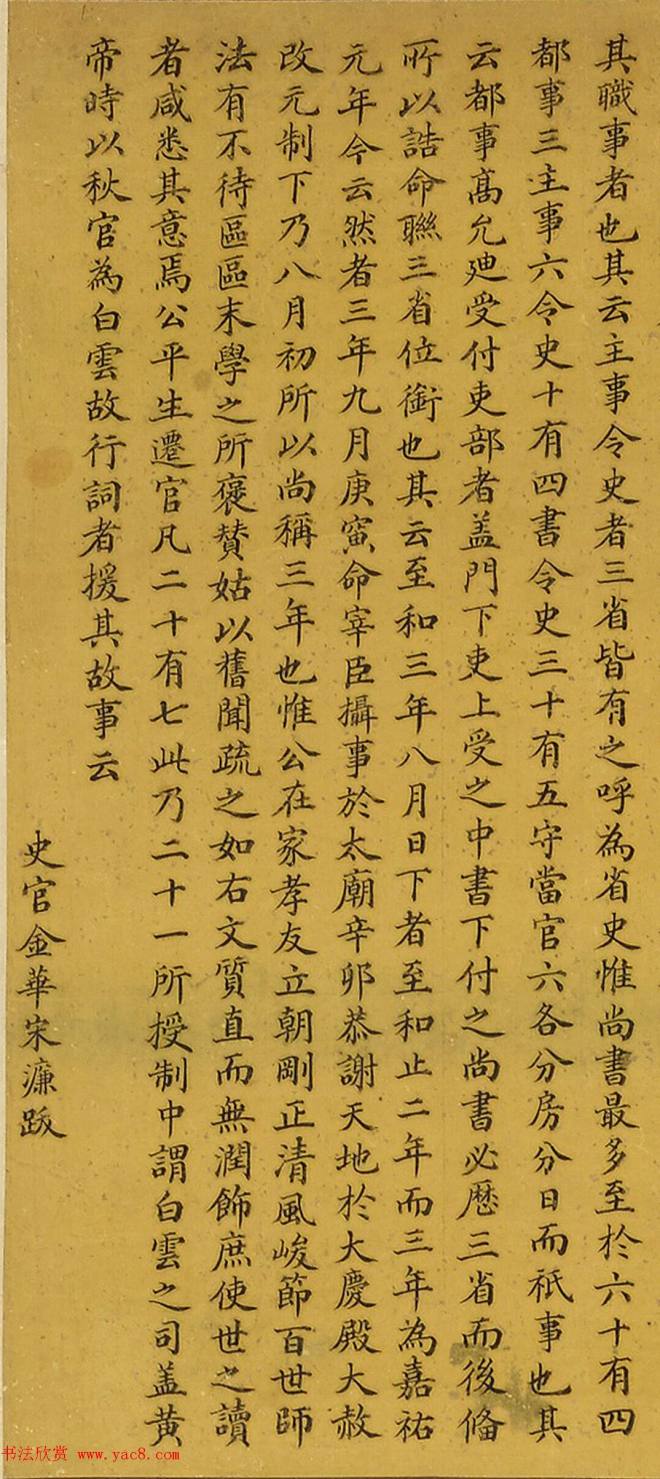 其職事者也其云主事令史者三省皆有之呼為省史惟尚書最多至於六十有四
都事三主事六令史十有四書令史三十有五守當官六各分房分日而祇事也其
云都事高允廸受付吏部者盖門下吏上受之中書下付之尚書必歷三省而後俻
所以誥命聯三省位銜也其云至和三年八月日下者至和止二年而三年為嘉祐
元年今云然者三年九月庚寅命宰臣攝事於太廟辛卯恭謝天地於大慶殿大赦
改元制下乃八月初所以尚稱三年也惟公在家孝友立朝剛正清風峻節百世師
法有不待區區末學之所褒賛姑以舊聞疏之如右文質直而無潤飾庶使世之讀
者咸悉其意焉公平生遷官凡二十有七此乃二十一所授制中謂白雲之司盖黄
帝時以秋官為白雲故行詞者援其故事云
史官金華宋濂跋
书法欣赏 www.yac8.com